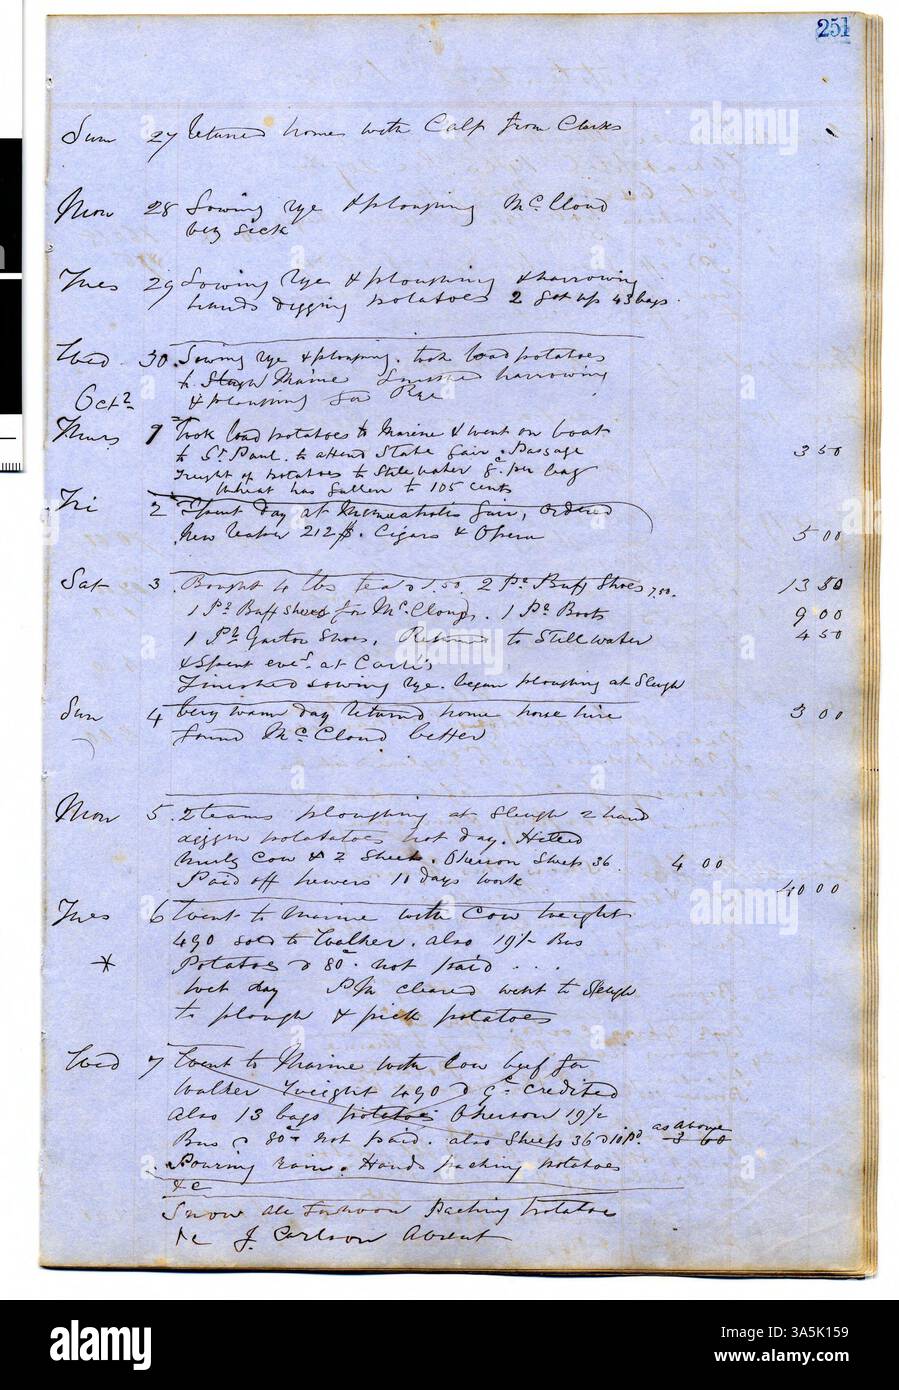 251
Sun 27 Returned home with Calf from Clarks
Mon 28 Sowing rye & ploughing McCloud
very sick
Tues 29 Sowing rye & ploughing & harrowing
hands digging potatoes 2 got up 43 bags.
Wed 30 Sowing rye & ploughing. took load potatoes
to Marine finished harrowing
Oct & ploughing for Rye
Thurs 1 Took load potatoes to Marine & went on boat
to St Paul. to attend State fair. Passage 3 50
Freight of potatoes to Stillwater per bag
Wheat has fallen to 105 cents
Fri 2 Spent day at Minneapolis fair, ordered
New 212 $. Cigars & Opera 5 00
Sat 3 Bought lbs tea 1.50. 2 Pr Buff Shoes 7.50. 13 50
1 Pr Buff shoes for McCloud. 1 Pr Boots 9 00
1 Pr Shoes, Returned to Stillwater 4 50
& Spent eveg at Carli's
Finished sowing rye. began ploughing at Sleigh
Sun 4 Very warm day returned home horse hire 3 00
found McCloud better
Mon 5 2 teams ploughing at Sleigh 2 hand
potatoes hot day. Killed
Cow & 2 Sheep. Okerson Sheep 36 4 00
Paid off hewers 11 days work 40 00
Tues 6 Went to Marine with Cow weight
490 sold to Walker. also 19½ Bus
* Potatoes @ 80c. not paid . . .
wet day PM cleared went to Sleigh
to plough & pick potatoes
Wed 7 Went to Marine with Cow beef for
Walker weight 490 @ credited
Also 13 bags potatoes Okerson 19½
Bus @ 80c not paid. also Sheep 36 @ 10 pd. as above 3 60
Pouring rain. Hands packing potatoes
&c
Snow all forenoon Packing potatoes
&c J. Carlson Absent
alamy
Image ID: 3A5K159
www.alamy.com